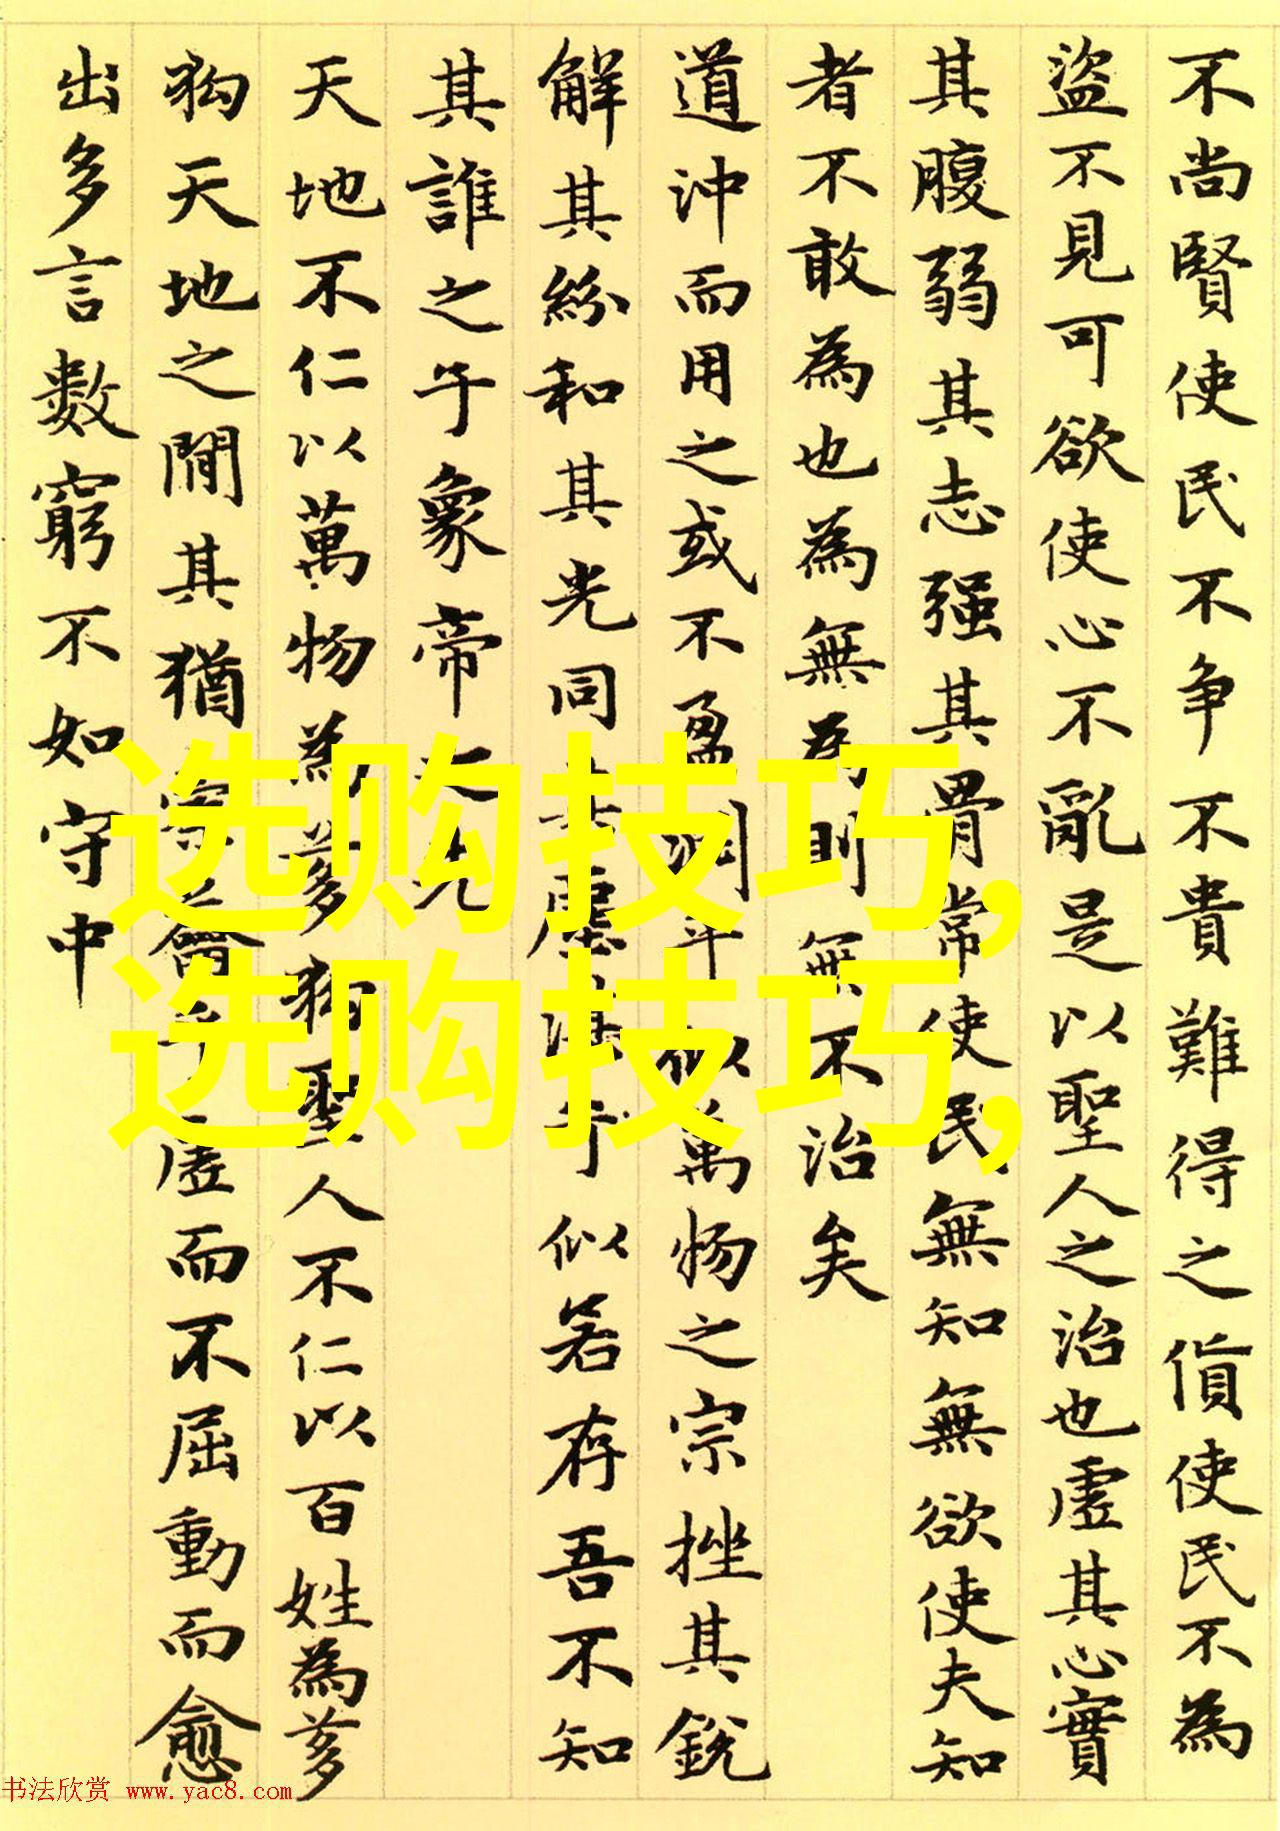 不尚賢使民不争不貴難得之貨使民不為
盜不見可欲使心不亂是以聖人之治也虛其心實
其腹弱其志强其骨常使民無知無欲使夫知
者不敢為也為無為則無不治矣
道沖而用之或不盈淵乎似萬物之宗挫其銳
解其紛和其光同其塵湛乎似若存吾不知
其誰之子象帝之先
天地不仁以萬物為芻狗聖人不仁以百姓為芻
狗天地之間其猶橐籥乎虛而不屈動而愈
出多言數窮不如守中
选购技巧,
选购技巧,
书法欣赏 www.yac8.com